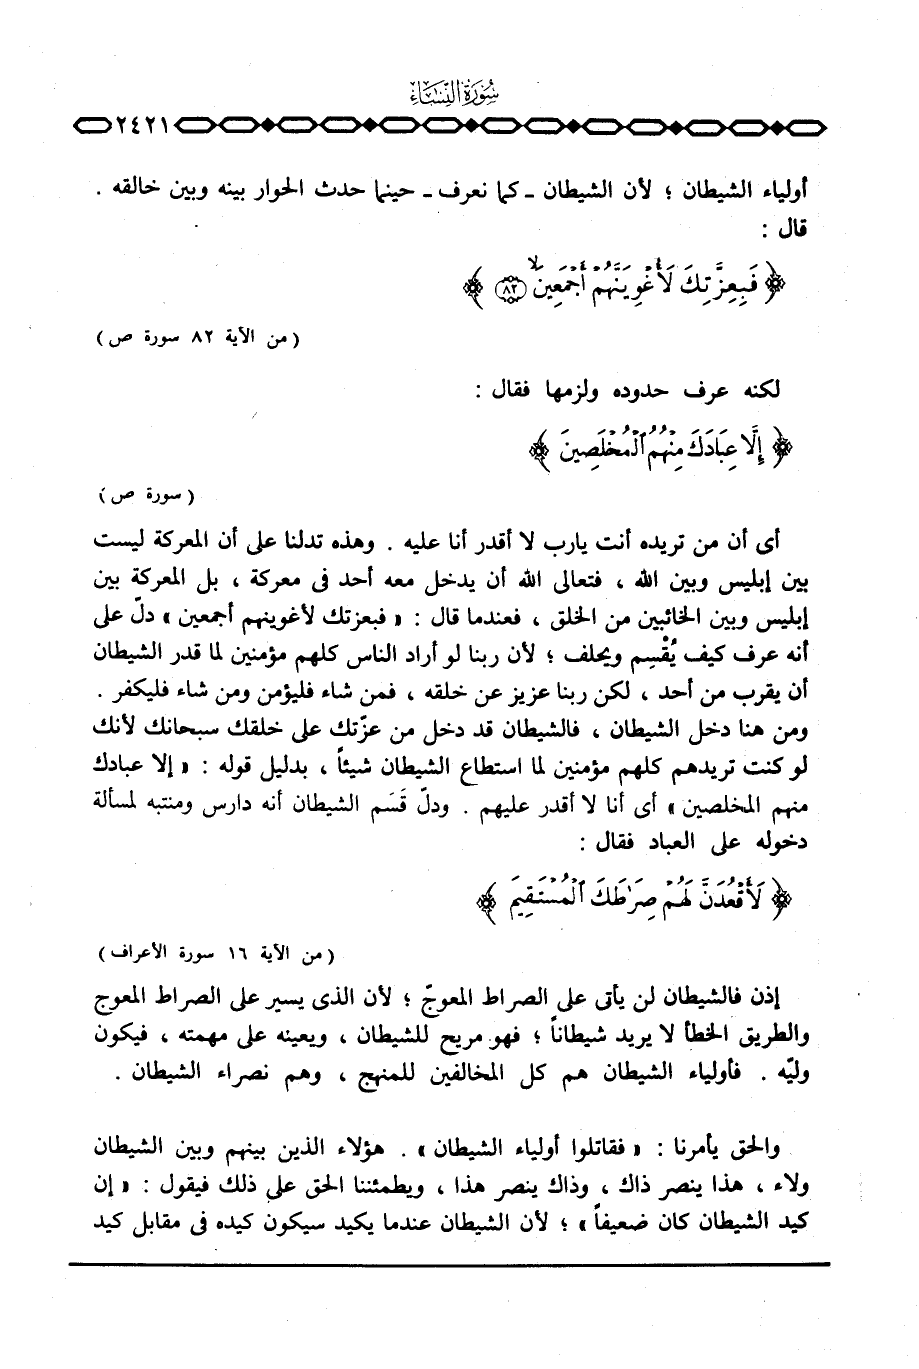 سُورَةُ النِّسَاء
٢٤٢١
أولياء الشيطان ؛ لأن الشيطان ـ كما نعرف ـ حينما حدث الحوار بينه وبين خالقه .
قال :
﴿ فَبِعِزَّتِكَ لَأُغْوِيَنَّهُمْ أَجْمَعِينَ ۙ (٨٢) ﴾
( من الآية ٨٢ سورة ص )
لكنه عرف حدوده ولزمها فقال :
﴿ إِلَّا عِبَادَكَ مِنْهُمُ ٱلْمُخْلَصِينَ ﴾
( سورة ص )
أى أن من تريده أنت يارب لا أقدر أنا عليه . وهذه تدلنا على أن المعركة ليست
بين إبليس وبين الله ، فتعالى الله أن يدخل معه أحد فى معركة ، بل المعركة بين
إبليس وبين الخائبين من الخلق ، فعندما قال : « فبعزتك لأغوينهم أجمعين » دلّ على
أنه عرف كيف يُقْسِم ويحلف ؛ لأن ربنا لو أراد الناس كلهم مؤمنين لما قدر الشيطان
أن يقرب من أحد ، لكن ربنا عزيز عن خلقه ، فمن شاء فليؤمن ومن شاء فليكفر .
ومن هنا دخل الشيطان ، فالشيطان قد دخل من عزّتك على خلقك سبحانك لأنك
لو كنت تريدهم كلهم مؤمنين لما استطاع الشيطان شيئاً ، بدليل قوله : « إلا عبادك
منهم المخلصين » أى أنا لا أقدر عليهم . ودلّ قَسَم الشيطان أنه دارس ومنتبه لمسألة
دخوله على العباد فقال :
﴿ لَأَقْعُدَنَّ لَهُمْ صِرَٰطَكَ ٱلْمُسْتَقِيمَ ﴾
( من الآية ١٦ سورة الأعراف )
إذن فالشيطان لن يأتى على الصراط المعوجّ ؛ لأن الذى يسير على الصراط المعوج
والطريق الخطأ لا يريد شيطاناً ؛ فهو مريح للشيطان ، ويعينه على مهمته ، فيكون
وليّه . فأولياء الشيطان هم كل المخالفين للمنهج ، وهم نصراء الشيطان .
والحق يأمرنا : « فقاتلوا أولياء الشيطان » . هؤلاء الذين بينهم وبين الشيطان
ولاء ، هذا ينصر ذاك ، وذاك ينصر هذا ، ويطمئننا الحق على ذلك فيقول : « إن
كيد الشيطان كان ضعيفاً » ؛ لأن الشيطان عندما يكيد سيكون كيده فى مقابل كيد